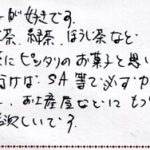 が好きです.
茶、緑茶、ほうじ茶など
にピッタリのお菓子と思い
付けば、SA等で必ずカ
、お土産などにもつ
欲しいです